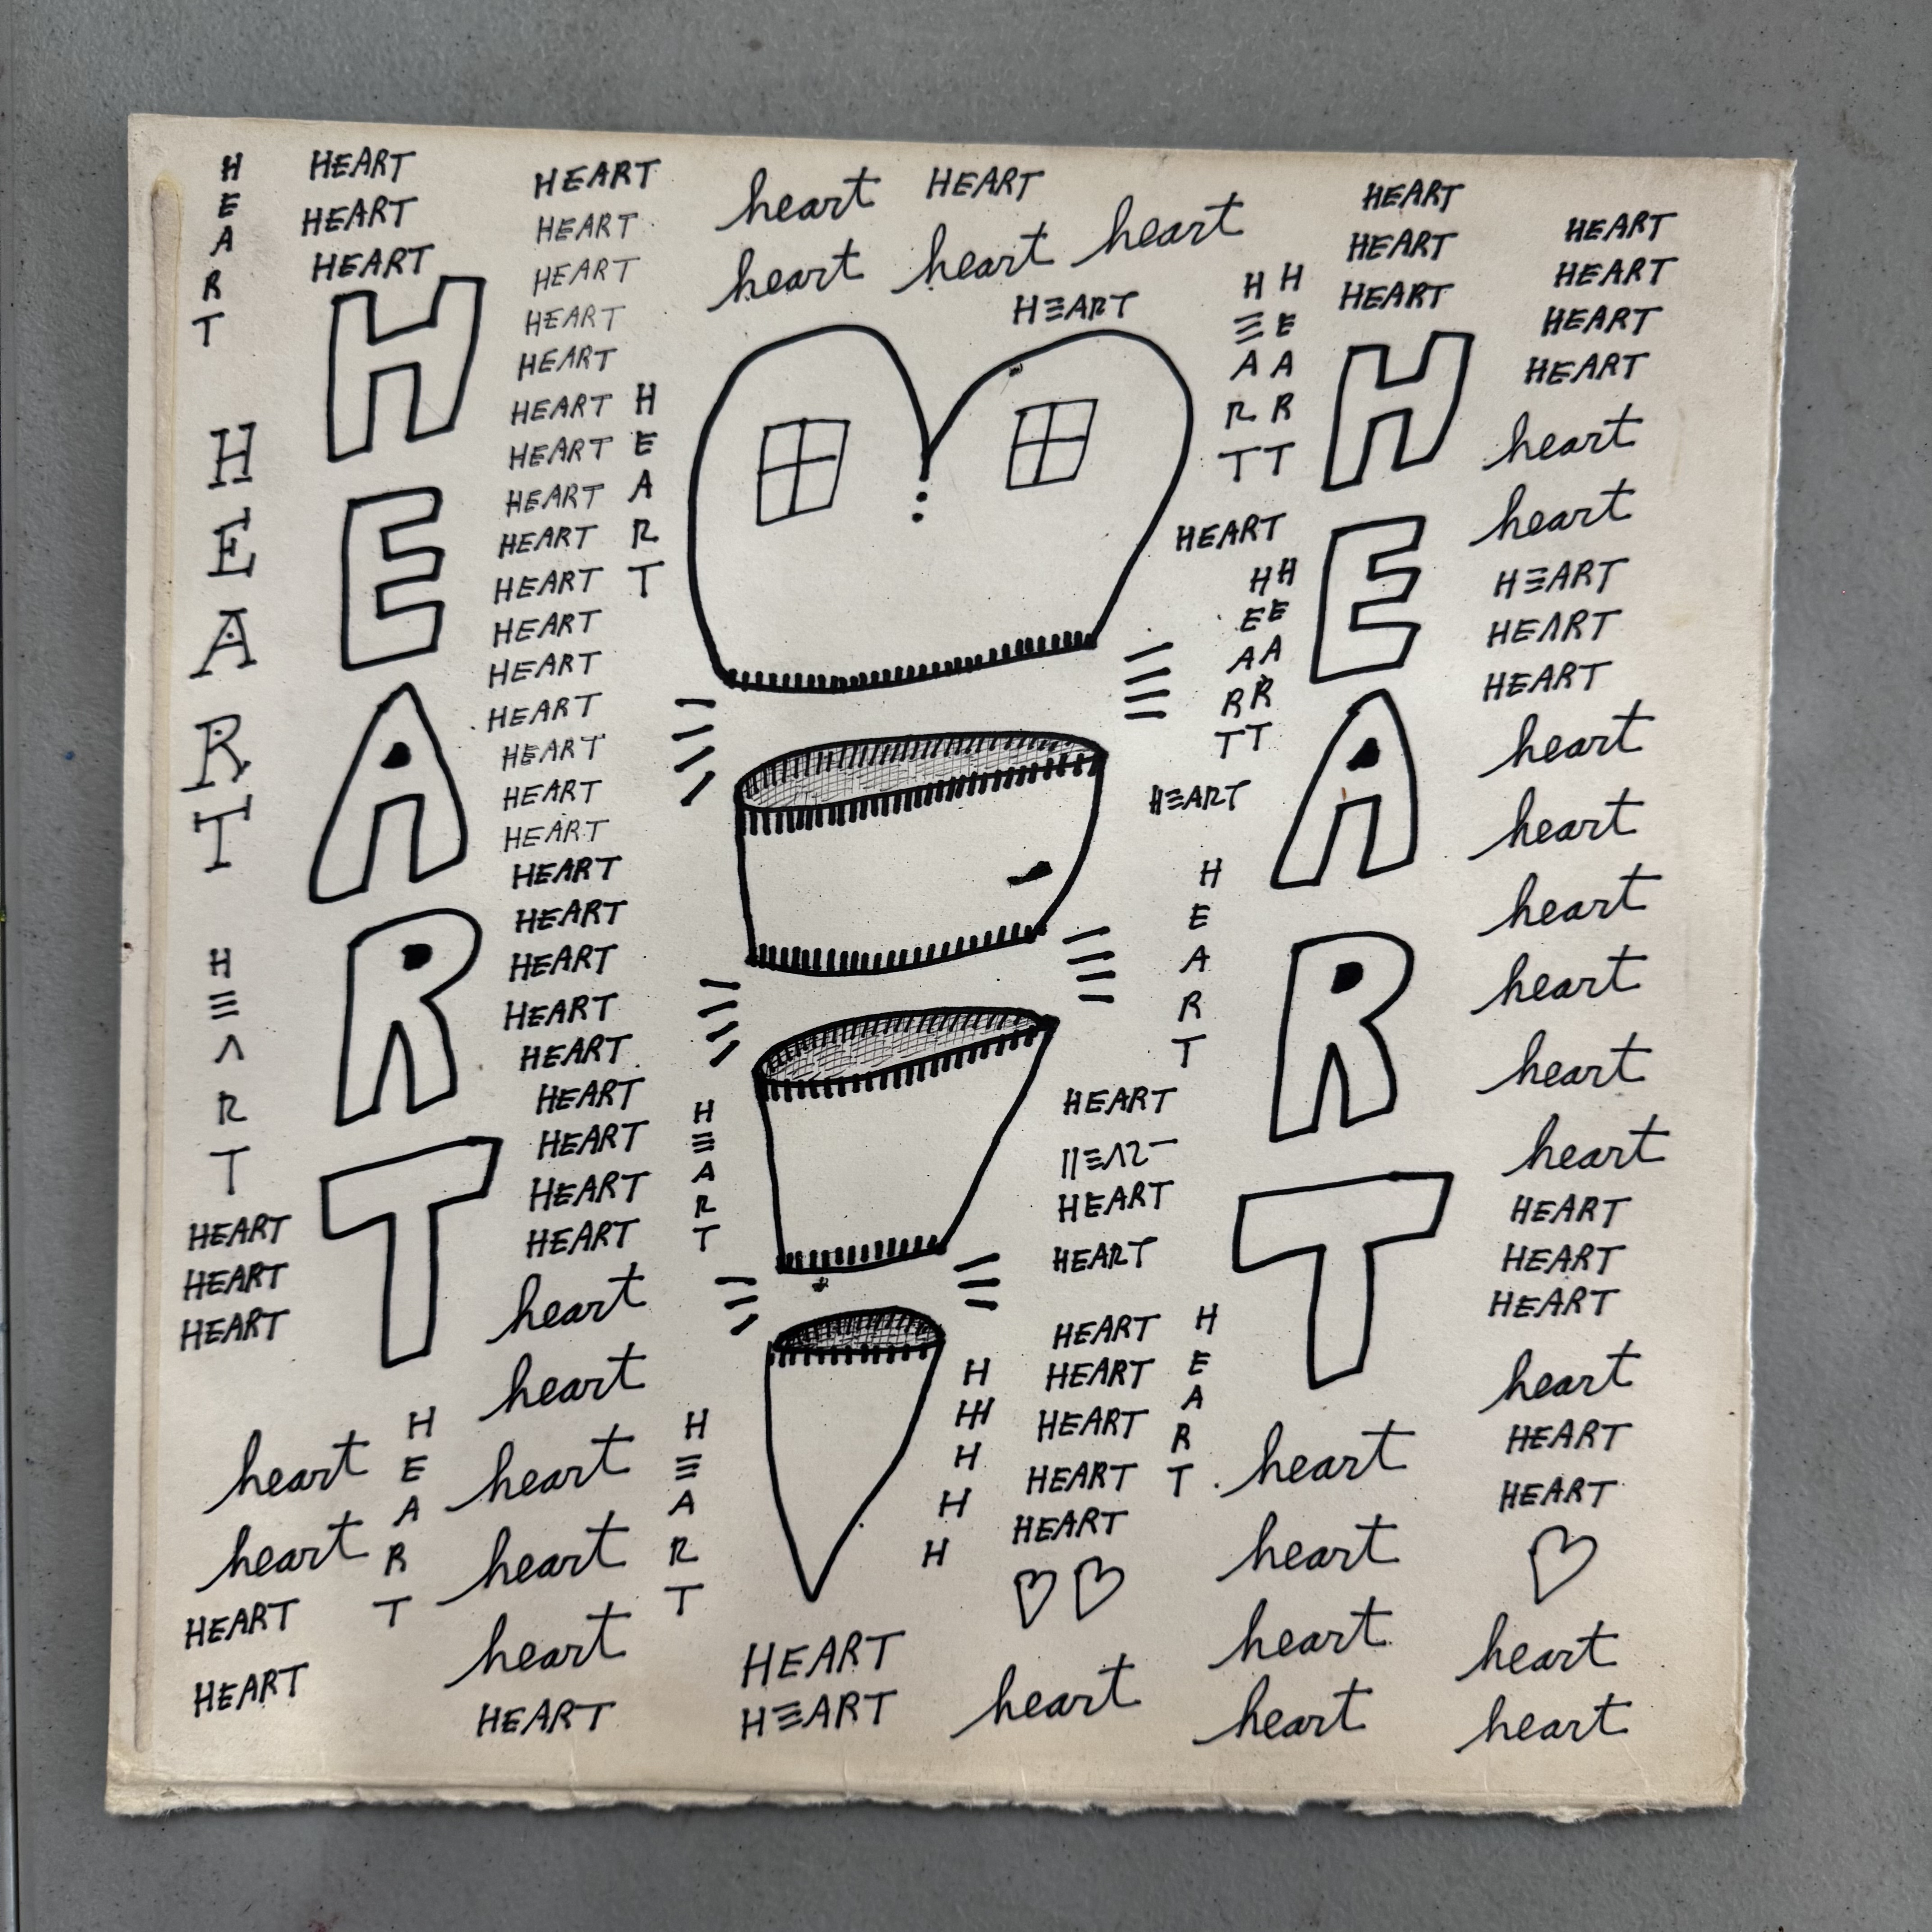 HEART
HEART
HEART
HEART
HEART
HEART
heart
heart
HEART
HEART
HEART
HEART
HEART
HEART
HEART
HEART
HEART
HEART
HEART
HEART
HEART
HEART
HEART
HEART
HEART
HEART
HEART
HEART
HEART
HEART
HEART
HEART
HEART
HEART
HEART
HEART
HEART
HEART
HEART
HEART
heart
heart
heart
heart
heart
HEART
HEART
HEART
HEART
heart HEART
heart heart heart
HEART
HEART
HEART
heart
HEART
HEART
HEART
HEART
HEART
HEART
HEART
HEART
HEART
HEART
HEART
HEART
HEART
HEART
HEART
HEART
H
H H
H
H
H
HEART
HEART
HEART
HEART
HEART
heart
heart
heart
heart
HEART
HEART
HEART
HEART
heart
heart
HEART
HEART
HEART
heart
heart
heart
heart
heart
heart
HEART
HEART
HEART
heart
HEART
HEART
heart
heart